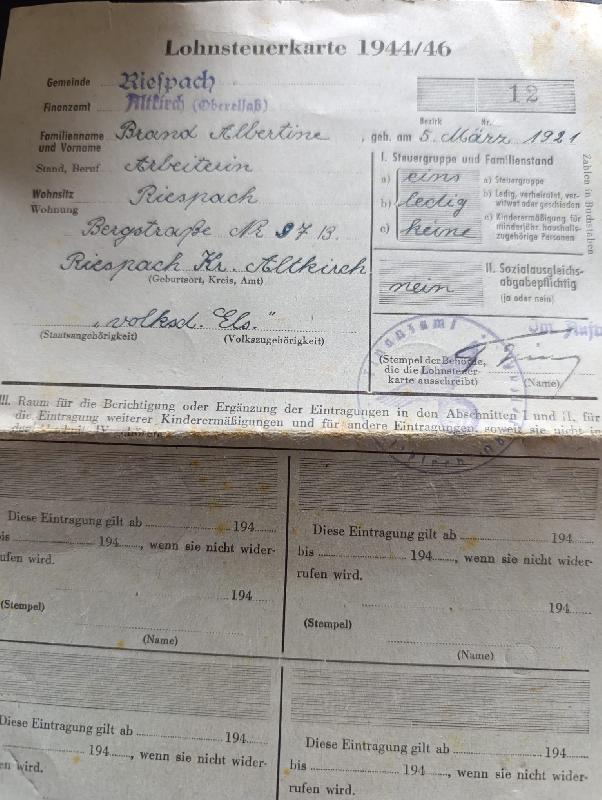 Lohnsteuerkarte 1944/46
Gemeinde Riespach
Finanzamt Altkirch (Oberelsaß)
12
Bezirk Nr.
Familienname und Vorname Brand Albertine, geb. am 5. März 1921
Stand, Beruf Arbeiterin
Wohnsitz Riespach
Wohnung
Bergstraße Nr 97 B.
Riespach Kr. Altkirch
(Geburtsort, Kreis, Amt)
"volksd. Els."
(Staatsangehörigkeit) (Volkszugehörigkeit)
I. Steuergruppe und Familienstand
a) eins a) Steuergruppe
b) ledig b) Ledig, verheiratet, verwitwet oder geschieden
c) keine c) Kinderermäßigung für minderjähr. haushaltszugehörige Personen
Zahlen in Buchstaben
nein
II. Sozialausgleichsabgabepflichtig
(ja oder nein)
Im
Finanzamt
(Stempel der Behörde,
die die Lohnsteuerkarte ausschreibt) (Name)
III. Raum für die Berichtigung oder Ergänzung der Eintragungen in den Abschnitten I und II, für
die Eintragung weiterer Kinderermäßigungen und für andere Eintragungen, soweit sie nicht in
Diese Eintragung gilt ab 194
bis 194, wenn sie nicht widerrufen wird.
194
(Stempel)
(Name)
Diese Eintragung gilt ab 194
bis 194, wenn sie nicht widerrufen wird.
194
(Stempel)
(Name)
Diese Eintragung gilt ab 194
194, wenn sie nicht wider-
en wird.
Diese Eintragung gilt ab 194
bis 194, wenn sie nicht widerrufen wird.